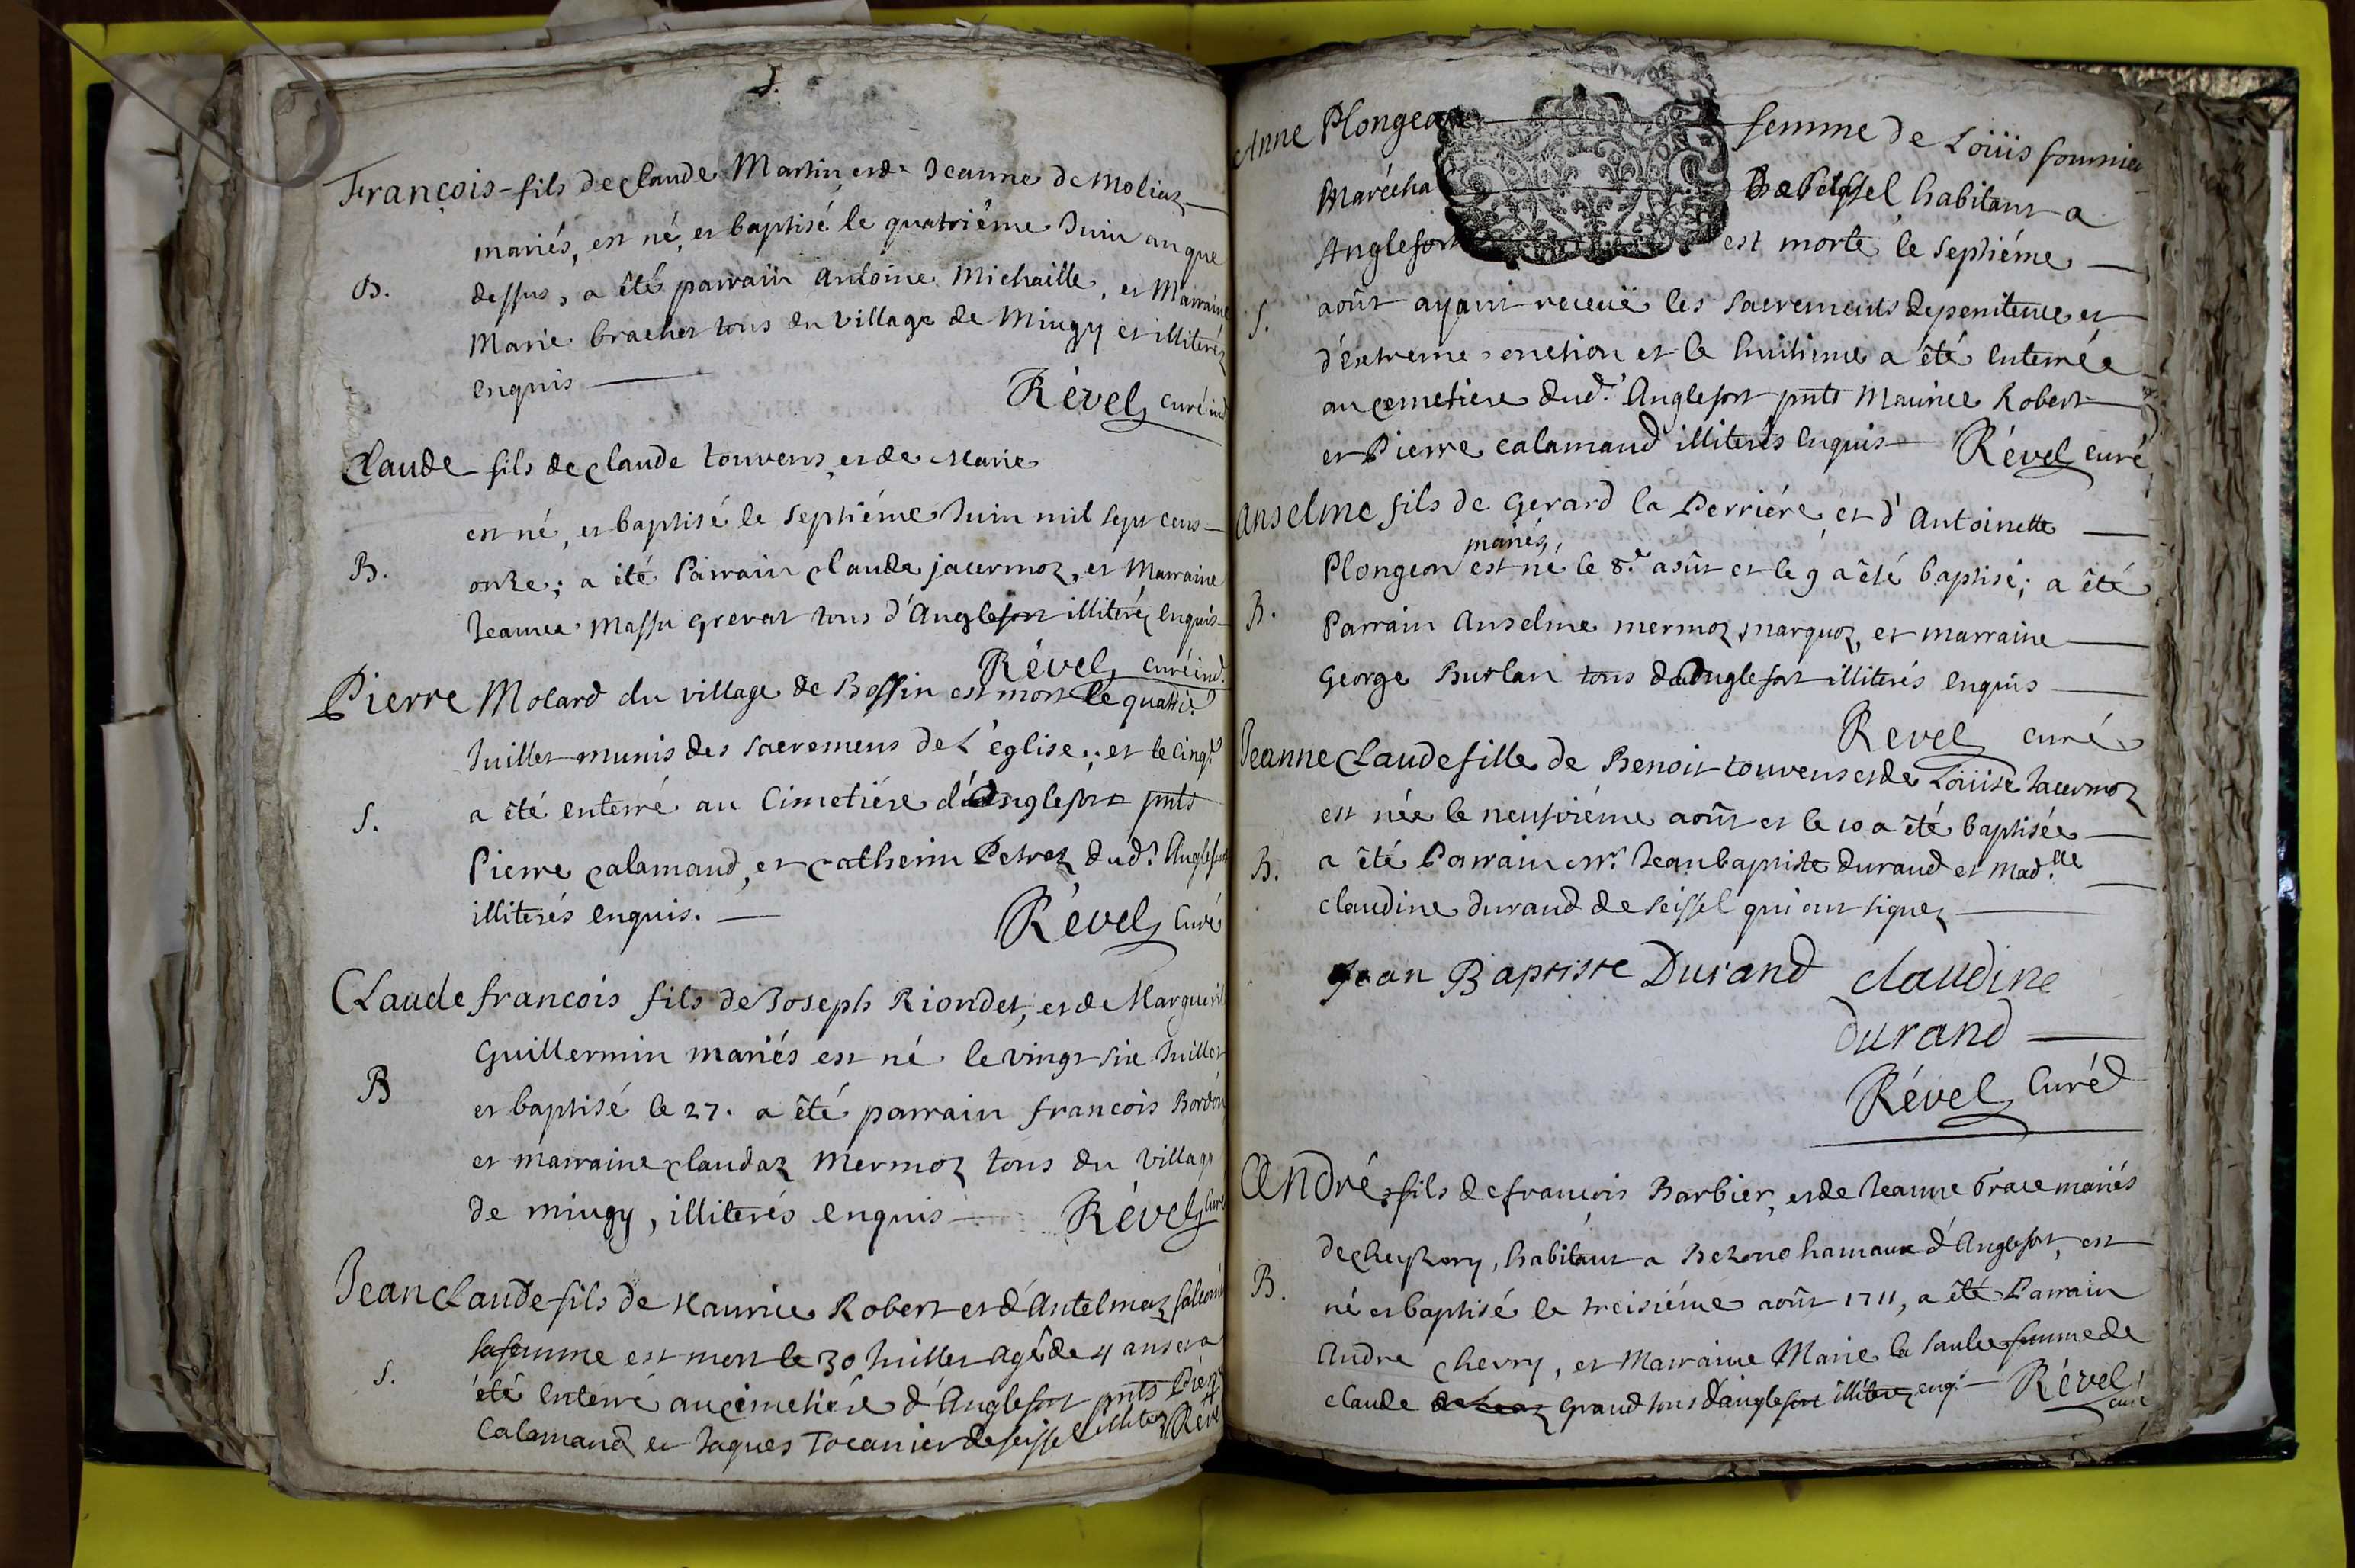 François fils de claude Martin, et de Jeanne de Moliaz
mariés, est né, et baptisé le quatriême Juin an que
B. dessus, a êté parrain Antoine Michaille, et Marraine
Marie bracher tous du village de Mingy et illiterés
enquis Révél curé ind
Claude fils de claude touvens et de Marie
est né, et baptisé le septiéme Juin mil sept cens
B. onze; a été Parrain claude jacermoz, et Marraine
Jeanne Massu Grevat tous d'Anglefort illiteréz enquis
Révél curé ind.
Pierre Molard du village de Bossin est mort le quatri.e
Juillet munis des sacremens de L'église; et le cinq.e
S. a êté enterré au Cimetiére d'Anglefort pnts
Pierre Calamand, et Catherin Petrez dud.t Anglefort
illiterés enquis. Révél Curé
Claude francois fils de Joseph Riondet, et de Marguerit
Guillermin mariés est né le vingt six Juillet
B et baptisé le 27. a êté parrain francois Bordon
et marraine claudaz Mermoz tous du Village
de mingy, illiterés enquis Révél Curé
Jean Claude fils de Maurice Robert et d'Antelmaz
sa femme est mort le 30 Juillet Agé de 4 ans et a
S. êté enterré au cimetiére d'Anglefort pnts Pierre
Calamand et Jaques Tocanier de seissel illiterz Révél
Anne Plongeon femme de Loüis fournier
Marécha de seissel habitant a
Anglefort est morte le septiéme
S. août ayant receuë les sacrements de penitence et
d'extreme onction et le huitieme a êté enterrée
au cemetiere dud.t Anglefort pnts Maurice Robert
et Pierre calamand illiterés enquis Révél curé
Anselme fils de Gerard la Perriére et d'Antoinette
mariés
Plongeon est né le 8.e août et le 9 a êté baptisé; a êté
B. Parrain Anselme mermoz marquoz, et marraine
George Burlan tous d'Anglefort illiterés enquis
Révél curé
Jeanne Claude fille de Benoit touvens et de Loüise Jacermoz
est née le neufviéme août et le 10 a êté baptisée
B. a êté Parrain Mr. Jean baptiste durand et Mad.elle
claudine durand de seissel qui ont signez
Jean Baptiste Durand claudine
durand
Révél Curé
André fils de francois Barbier, et de Jeanne Trace mariés
de cheysory, habitant a Bezono hamaux d'Anglefort, est
B. né et baptisé le treisiéme août 1711, a êté Parrain
Andre chevry, et Marraine Marie la saule femme de
claude Grand tous d'anglefort illiterez enq.s Révél
curé